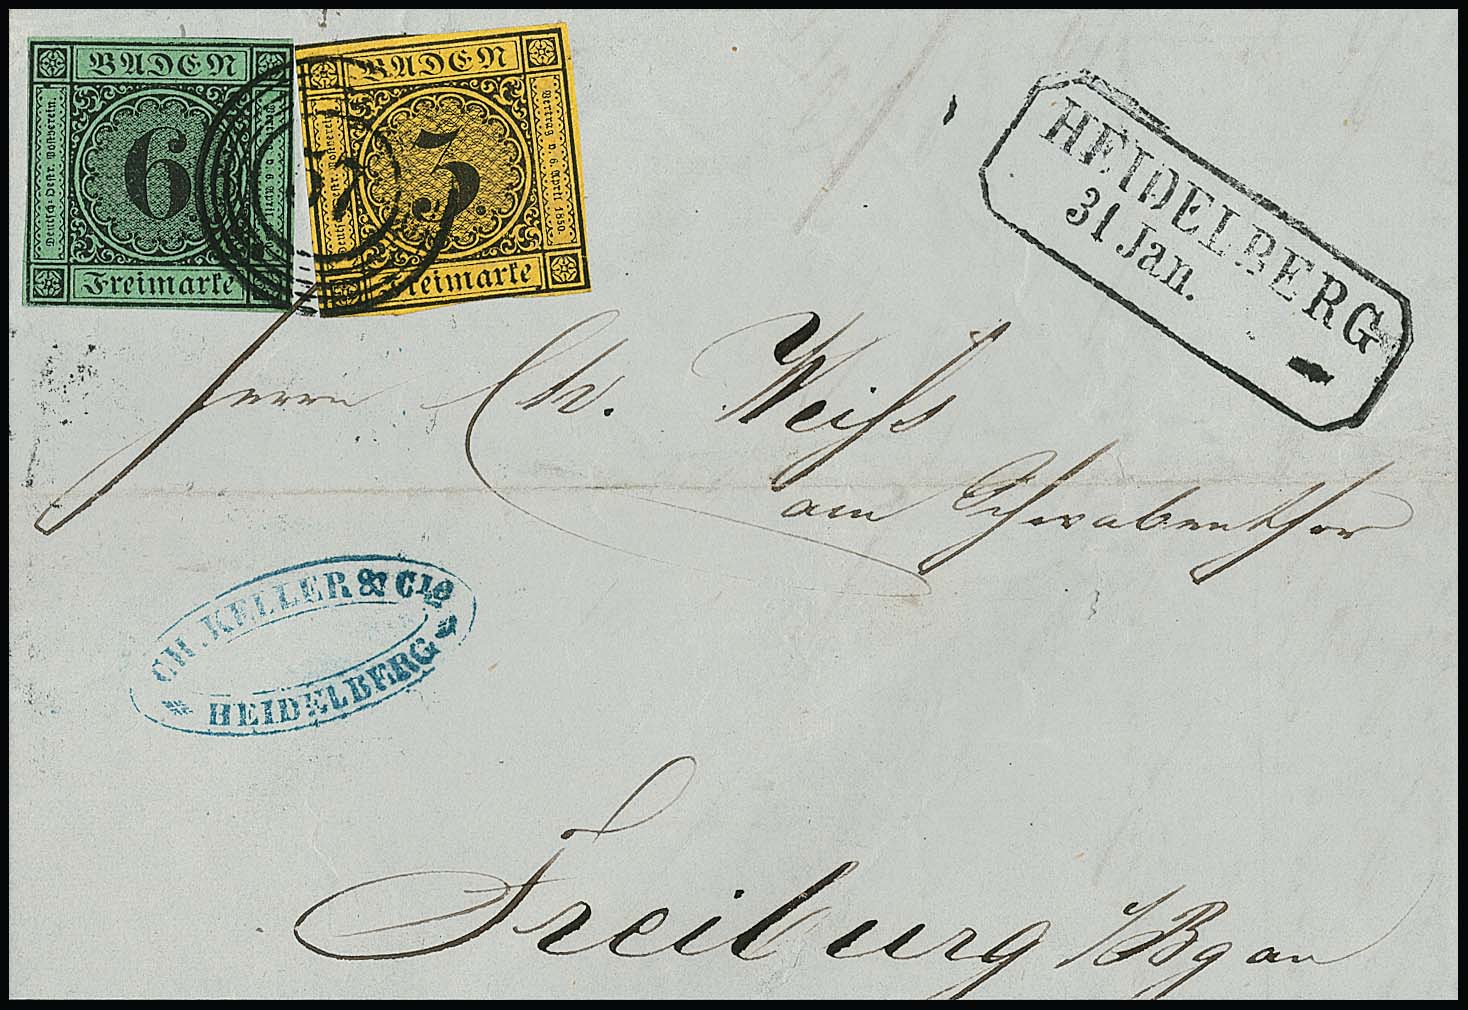 BADEN
Deutsch-Oestr. Postverein.
6.
Freimarke
BADEN
3.
Vertrag v. 6. April 1850.
Freimarke
57
HEIDELBERG
31 Jan.
Herrn Ch. Weiss
am Schwabenthor
CH. KELLER & CIE
HEIDELBERG
Freiburg i/Bgau